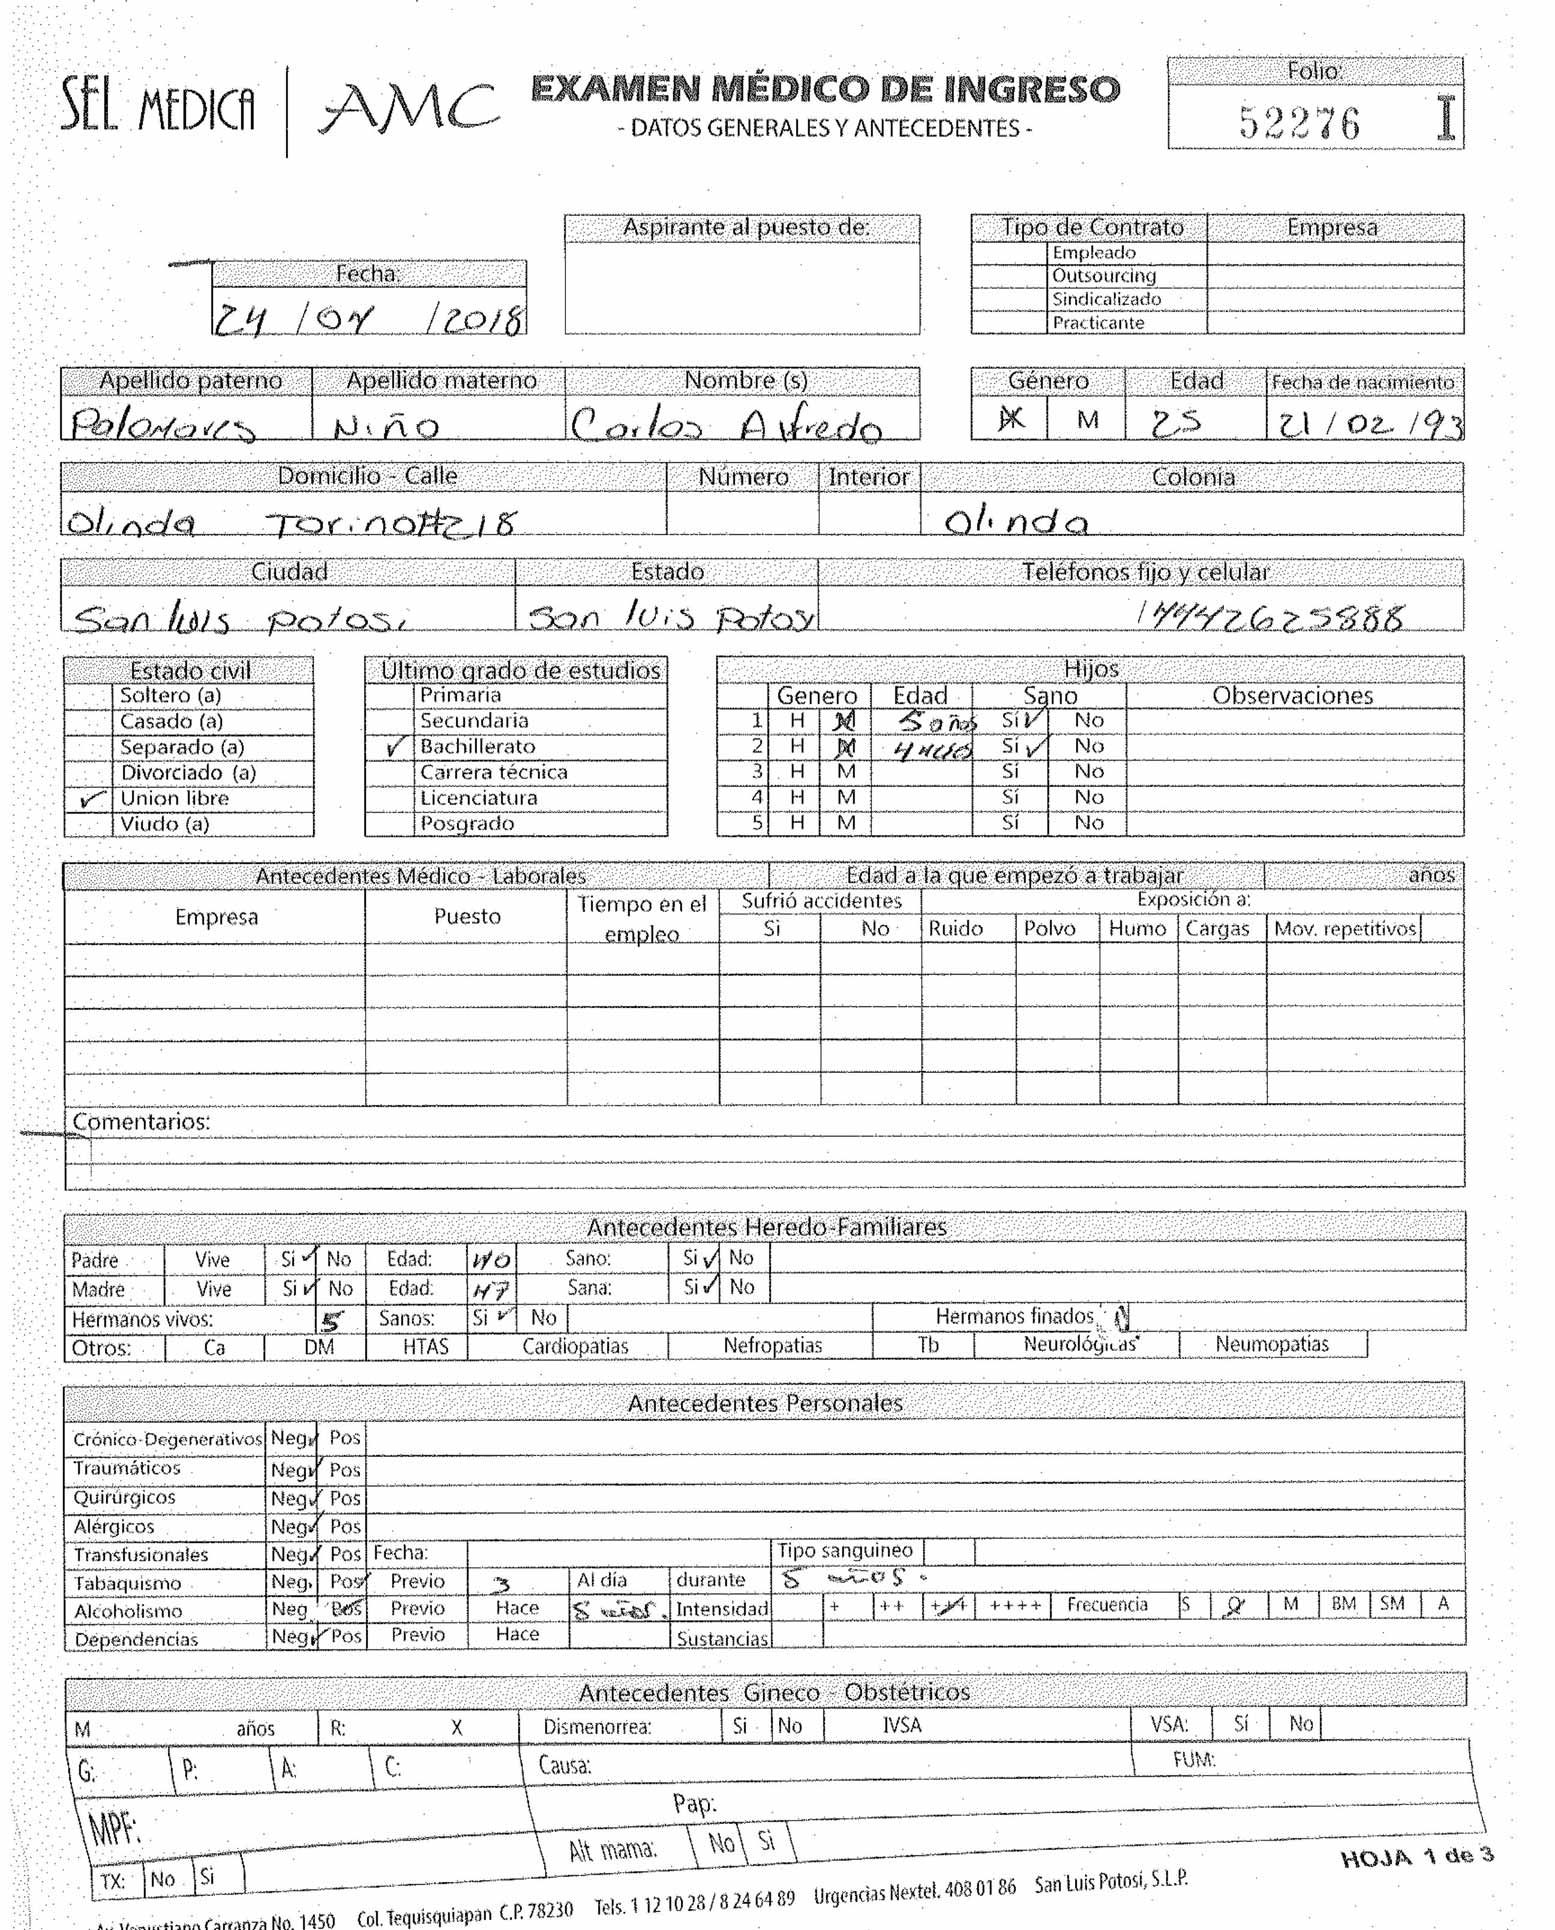 SEL MEDICA | AMC EXAMEN MÉDICO DE INGRESO
- DATOS GENERALES Y ANTECEDENTES -
Folio:
52276 I
Fecha:
24 / 04 / 2018
Aspirante al puesto de:
Tipo de Contrato Empresa
Empleado
Outsourcing
Sindicalizado
Practicante
Apellido paterno Apellido materno Nombre (s) Género Edad Fecha de nacimiento
Palomares Niño Carlos Alfredo H M 25 21/02/93
Domicilio - Calle Número Interior Colonia
Olinda Torino #218 Olinda
Ciudad Estado Teléfonos fijo y celular
San luis potosi San luis Potosi 14442625888
Estado civil Último grado de estudios Hijos
Genero Edad Sano Observaciones
Soltero (a) Primaria
Casado (a) Secundaria 1 H M 5 años Sí ✓ No
Separado (a) ✓ Bachillerato 2 H M 4 meses Sí ✓ No
Divorciado (a) Carrera técnica 3 H M Sí No
✓ Union libre Licenciatura 4 H M Sí No
Viudo (a) Posgrado 5 H M Sí No
Antecedentes Médico - Laborales Edad a la que empezó a trabajar años
Empresa Puesto Tiempo en el empleo Sufrió accidentes Exposición a:
Si No Ruido Polvo Humo Cargas Mov. repetitivos
Comentarios:
Antecedentes Heredo-Familiares
Padre Vive Si ✓ No Edad: 40 Sano: Si ✓ No
Madre Vive Si ✓ No Edad: 47 Sana: Si ✓ No
Hermanos vivos: 5 Sanos: Si ✓ No Hermanos finados 0
Otros: Ca DM HTAS Cardiopatias Nefropatias Tb Neurológicas Neumopatias
Antecedentes Personales
Crónico-Degenerativos Neg ✓ Pos
Traumáticos Neg ✓ Pos
Quirúrgicos Neg ✓ Pos
Alérgicos Neg ✓ Pos
Transfusionales Neg ✓ Pos Fecha: Tipo sanguineo
Tabaquismo Neg. Pos ✓ Previo 3 Al día durante 5 años.
Alcoholismo Neg Pos Previo Hace 8 años. Intensidad + ++ +++ ++++ Frecuencia S Q M BM SM A
Dependencias Neg ✓ Pos Previo Hace Sustancias
Antecedentes Gineco - Obstétricos
M años R: X Dismenorrea: Si No IVSA VSA: Sí No
G: P: A: C: Causa: FUM:
MPF: Pap:
TX: No Si Alt mama: No Si
HOJA 1 de 3
Av. Venustiano Carranza No. 1450 Col. Tequisquiapan C.P. 78230 Tels. 1 12 10 28 / 8 24 64 89 Urgencias Nextel. 408 01 86 San Luis Potosí, S.L.P.